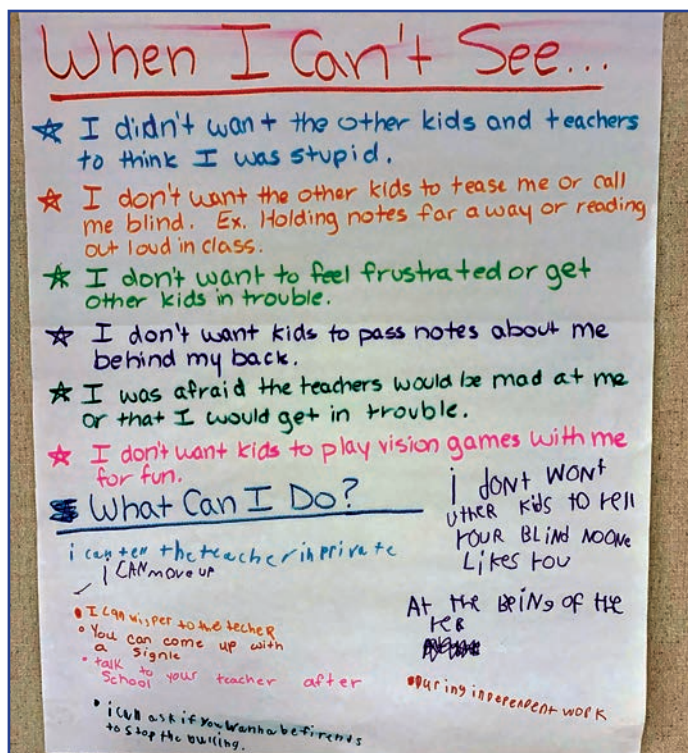 When I Can't See...
I didn't want the other kids and teachers
to think I was stupid.
I don't want the other kids to tease me or call
me blind. Ex. Holding notes far a way or reading
out loud in class.
I don't want to feel frustrated or get
other kids in trouble.
I don't want kids to pass notes about me
behind my back.
I was afraid the teachers would be mad at me
or that I would get in trouble.
I don't want kids to play vision games with me
for fun.
What Can I Do?
i can tell the teacher in private
I CAN move up
• I can wisper to the techer
• You can come up with
a signle
• talk to your teacher after
school
• i can ask if you wanna be firends
to stop the bulling.
i DONT WONT
UTHER KIDS TO tell
YOUR BLIND NOONE
LIKES YOU
At the BeiNg of the
• During independent work